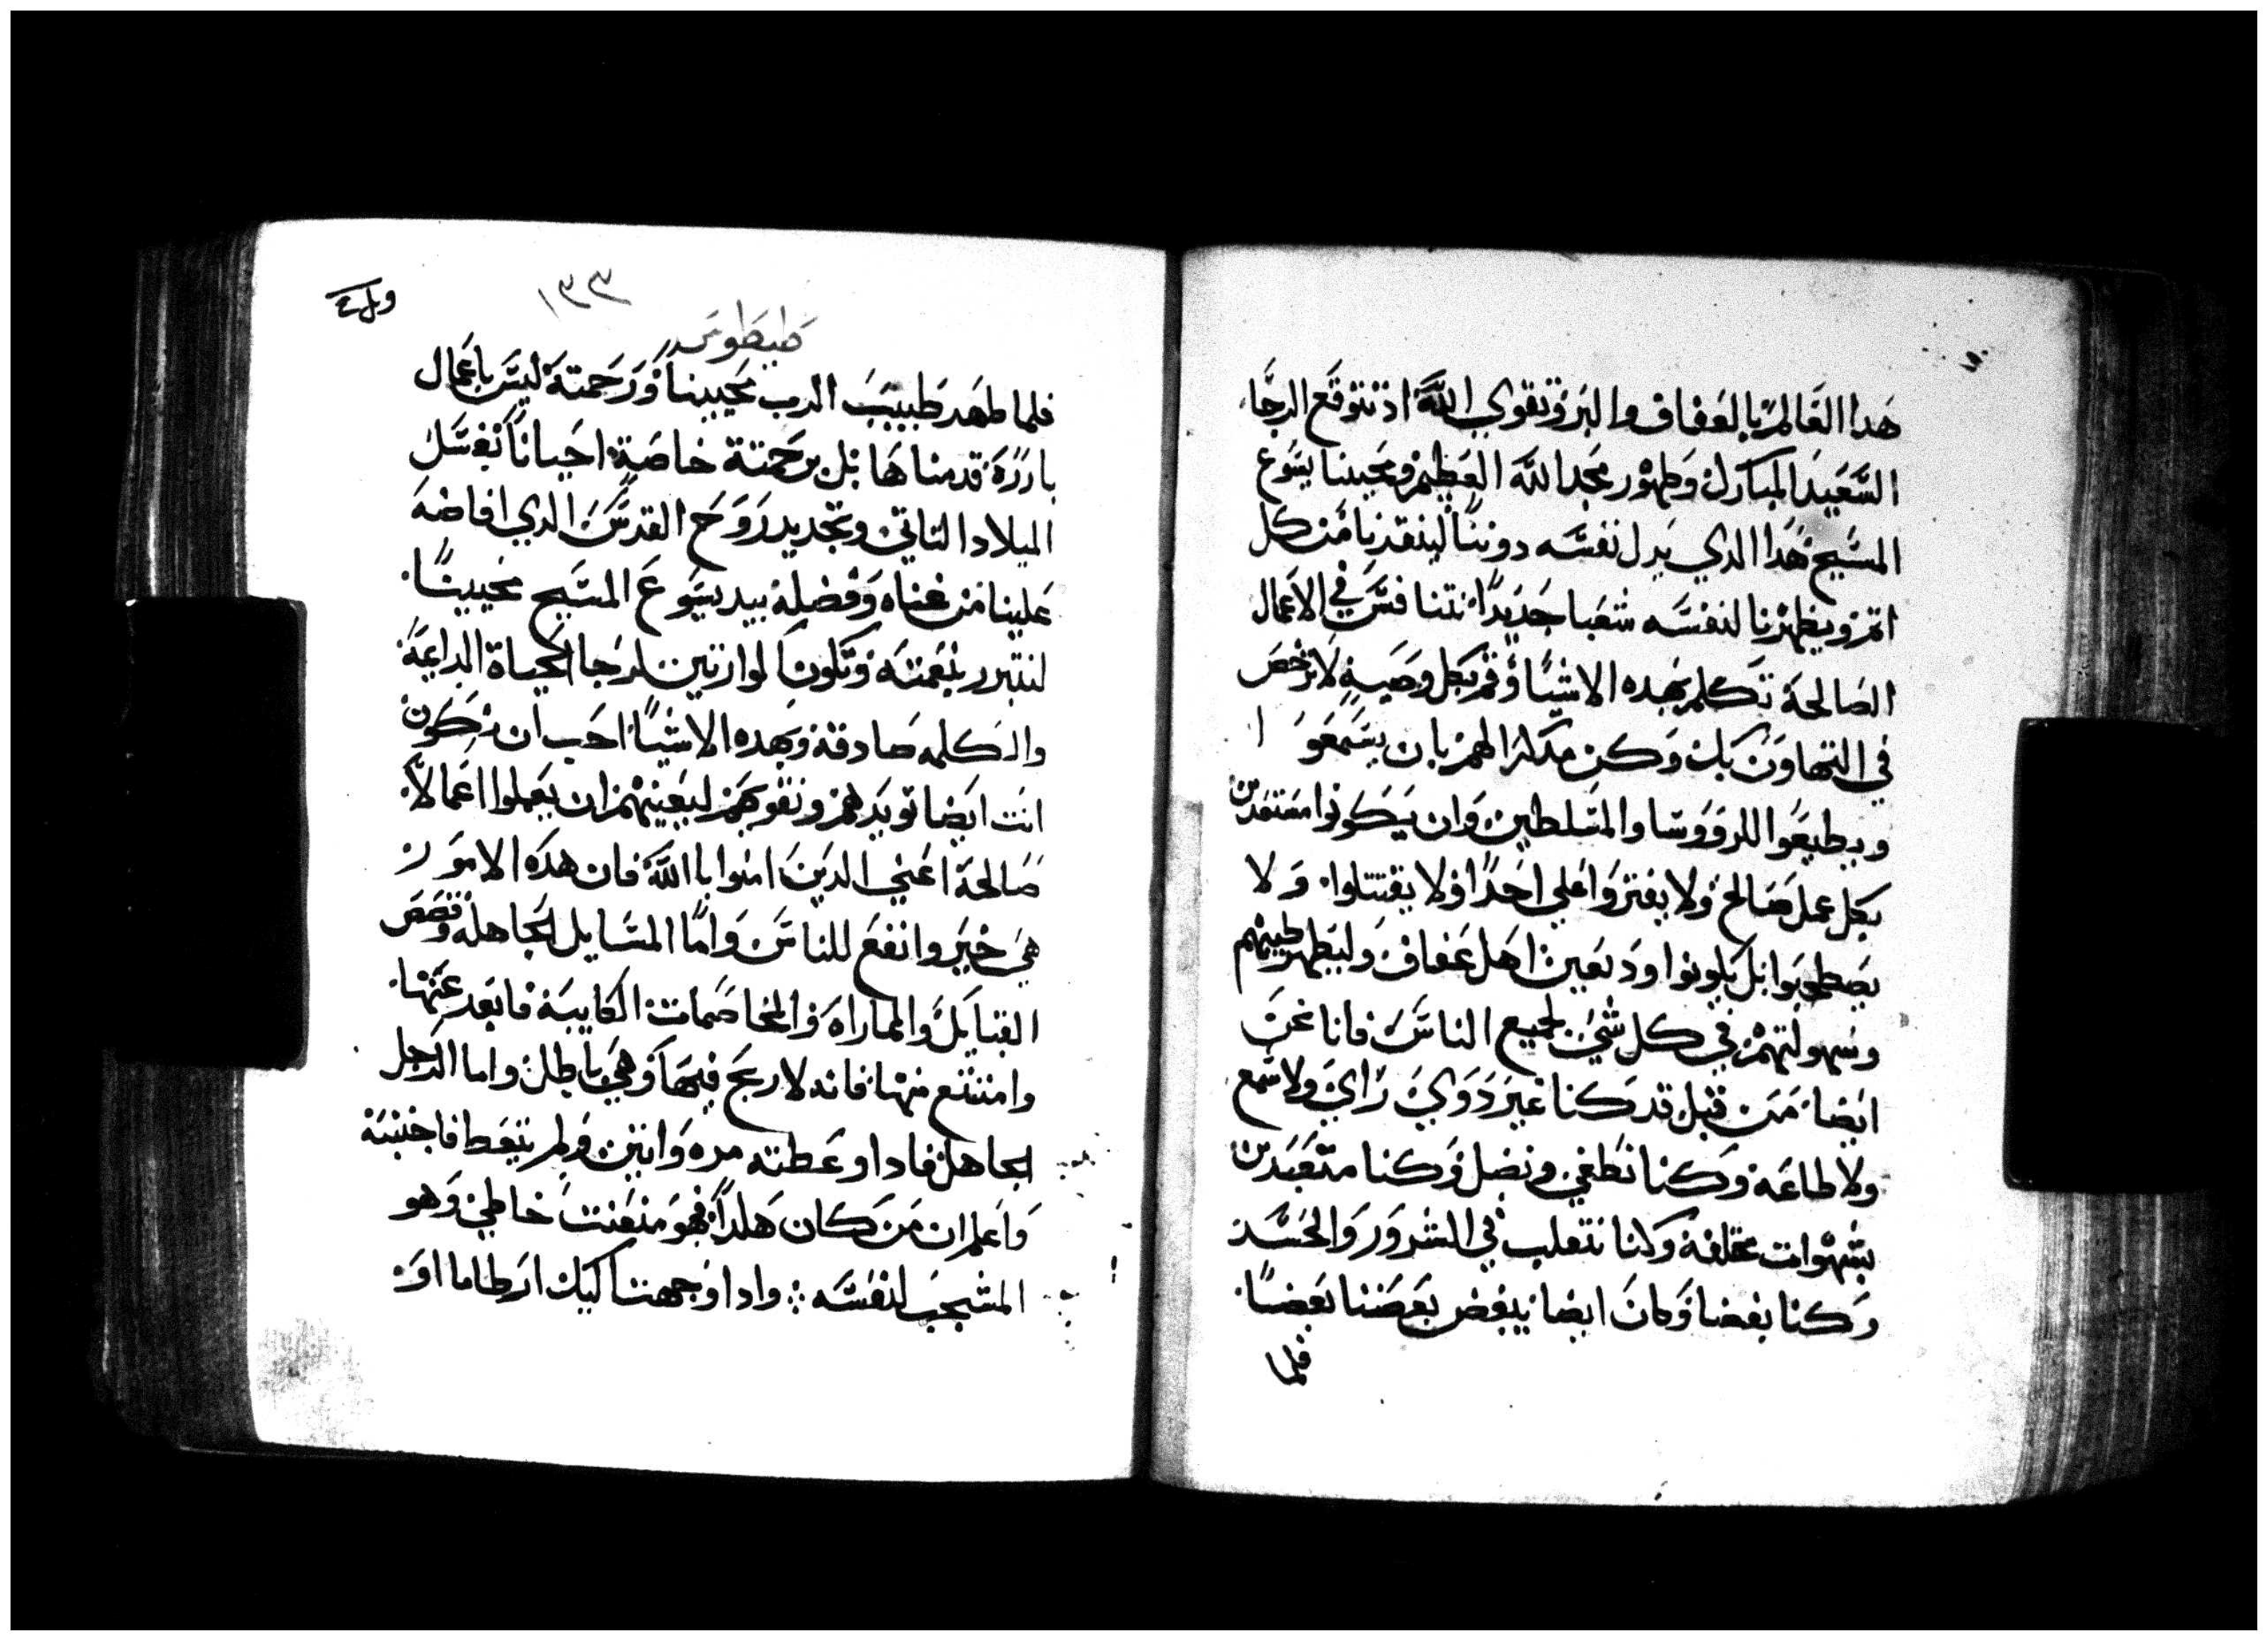 هدا العالم بالعفاف والبر وتقوي الله اد نتوقع الرجا
السعيد المبارك وظهور مجد الله العظيم ومحيينا يسوع
المسيح هدا الدي بدل نفسه دوننا لينقدنا من كل
اتم ويطهرنا لنفسه شعبا جديدا نتنافس في الاعمال
الصالحة تكلم بهده الاشيا وقم بكل وصية لا ترخص
في التهاون بك وكن مدكرا لهم بان يسمعوا
ويطيعوا للرووسا والمتسلطين وان يكونوا مستعدين
بكل عمل صالح ولا يفتروا علي احدا ولا يقتتلوا ولا
بل يكونوا ودىعين اهل عفاف وليظهر طيبتهم
وسهولتهم في كل شي لجميع الناس فانا نحن
ايضا من قبل قد كنا غير دوي راي ولا سمع
ولا طاعة وكنا نطغي ونضل وكنا متعبدين
بشهوات مختلفة وكنا نتقلب في الشرور والحسد
وكنا بغضا وكان ايضا يبغض بعضنا بعضا
فلما
١٣٣
طيطوس
فلما ظهر طيبب الرب محيينا ورحمتة ليس باعمال
باررة قدمناها بل برحمتة خاصة احيانا بغسل
الميلاد التاني وتجديد روح القدس الدي افاضه
علينا من غناه وفضلة بيد يسوع المسيح محيينا
لنتبرر بنعمته ونكون وارتين لرجا الحياة الدايمة
والكلمه صادقة وبهده الاشيا احب ان تكون
انت ايضا تويدهم وتقويهم ليعينهم ان يعملوا اعمالا
صالحة اعني الدين امنوا بالله فان هده الامور
هي خير وانفع للناس واما المسايل الجاهلة وقصص
القبايل والمماراه والمخاصمات الكايبة فابعد عنها
وامتنع منها فانه لا ربح فيها وهي باطل واما الرجل
الجاهل فادا وعظته مره واتنين ولم يتعظ فاجنبه
واعلم ان من كان هكدا فهو متعنت خاطي وهو
المشجب لنفسه وادا وجهت اليك ارطاما او